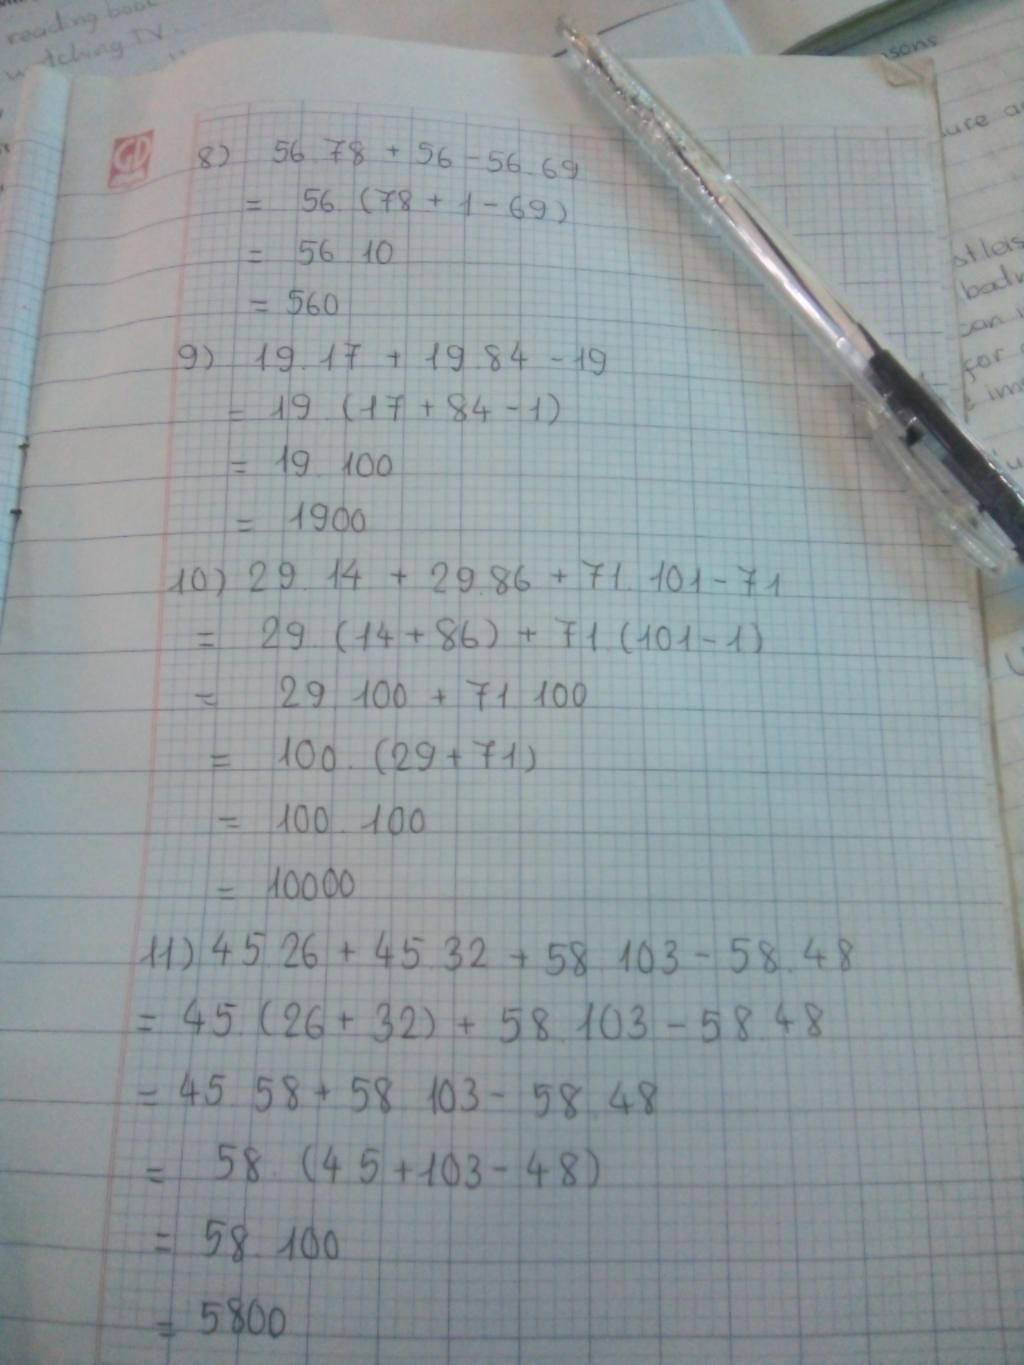 reading book
watching TV.
GD
sons
8) 56.78 + 56 - 56.69
= 56.(78 + 1 - 69)
= 56.10
= 560
9) 19.17 + 19.84 - 19
= 19.(17 + 84 - 1)
= 19.100
= 1900
10) 29.14 + 29.86 + 71.101 - 71
= 29.(14 + 86) + 71.(101 - 1)
= 29.100 + 71.100
= 100.(29 + 71)
= 100.100
= 10000
11) 45.26 + 45.32 + 58.103 - 58.48
= 45.(26 + 32) + 58.103 - 58.48
= 45.58 + 58.103 - 58.48
= 58.(45 + 103 - 48)
= 58.100
= 5800
for